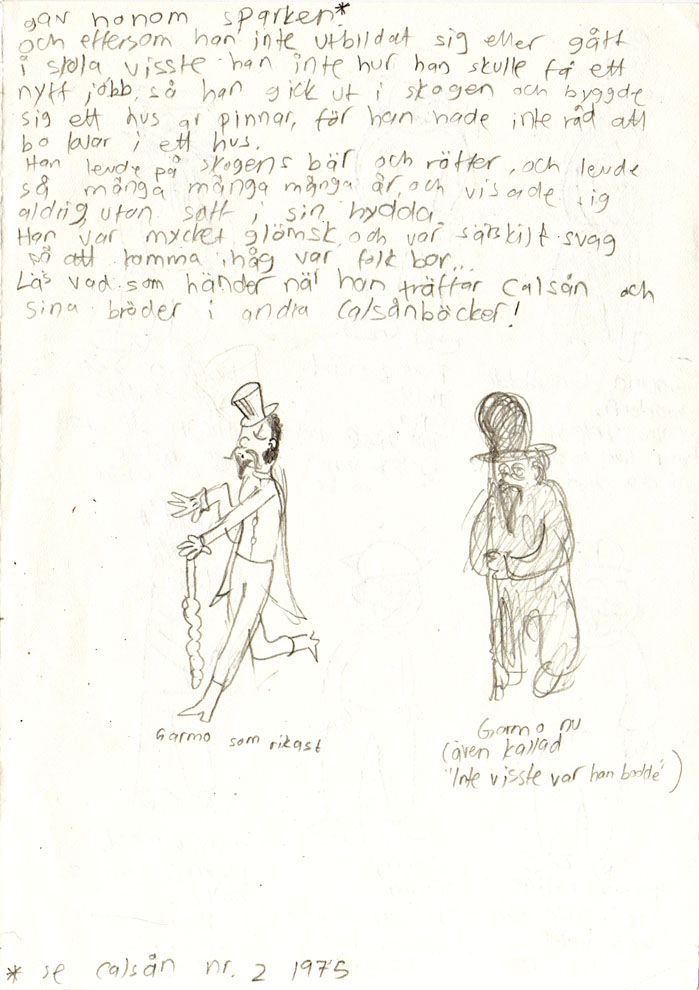 gav honom sparken*
och eftersom han inte utbildat sig eller gått
i skola visste han inte hur han skulle få ett
nytt jobb, så han gick ut i skogen och byggde
sig ett hus av pinnar, för han hade inte råd att
bo kvar i ett hus.
Han levde på skogens bär och rötter, och levde
så många många många år, och visade sig
aldrig utan satt i sin hydda.
Han var mycket glömsk, och var särskilt svag
på att komma ihåg var folk bor...
Läs vad som händer när han träffar Calsån och
sina bröder i andra Calsånböcker!
Garmo som rikast
Garmo nu
(även kallad
"Inte visste var han bodde")
* se Calsån nr. 2 1975